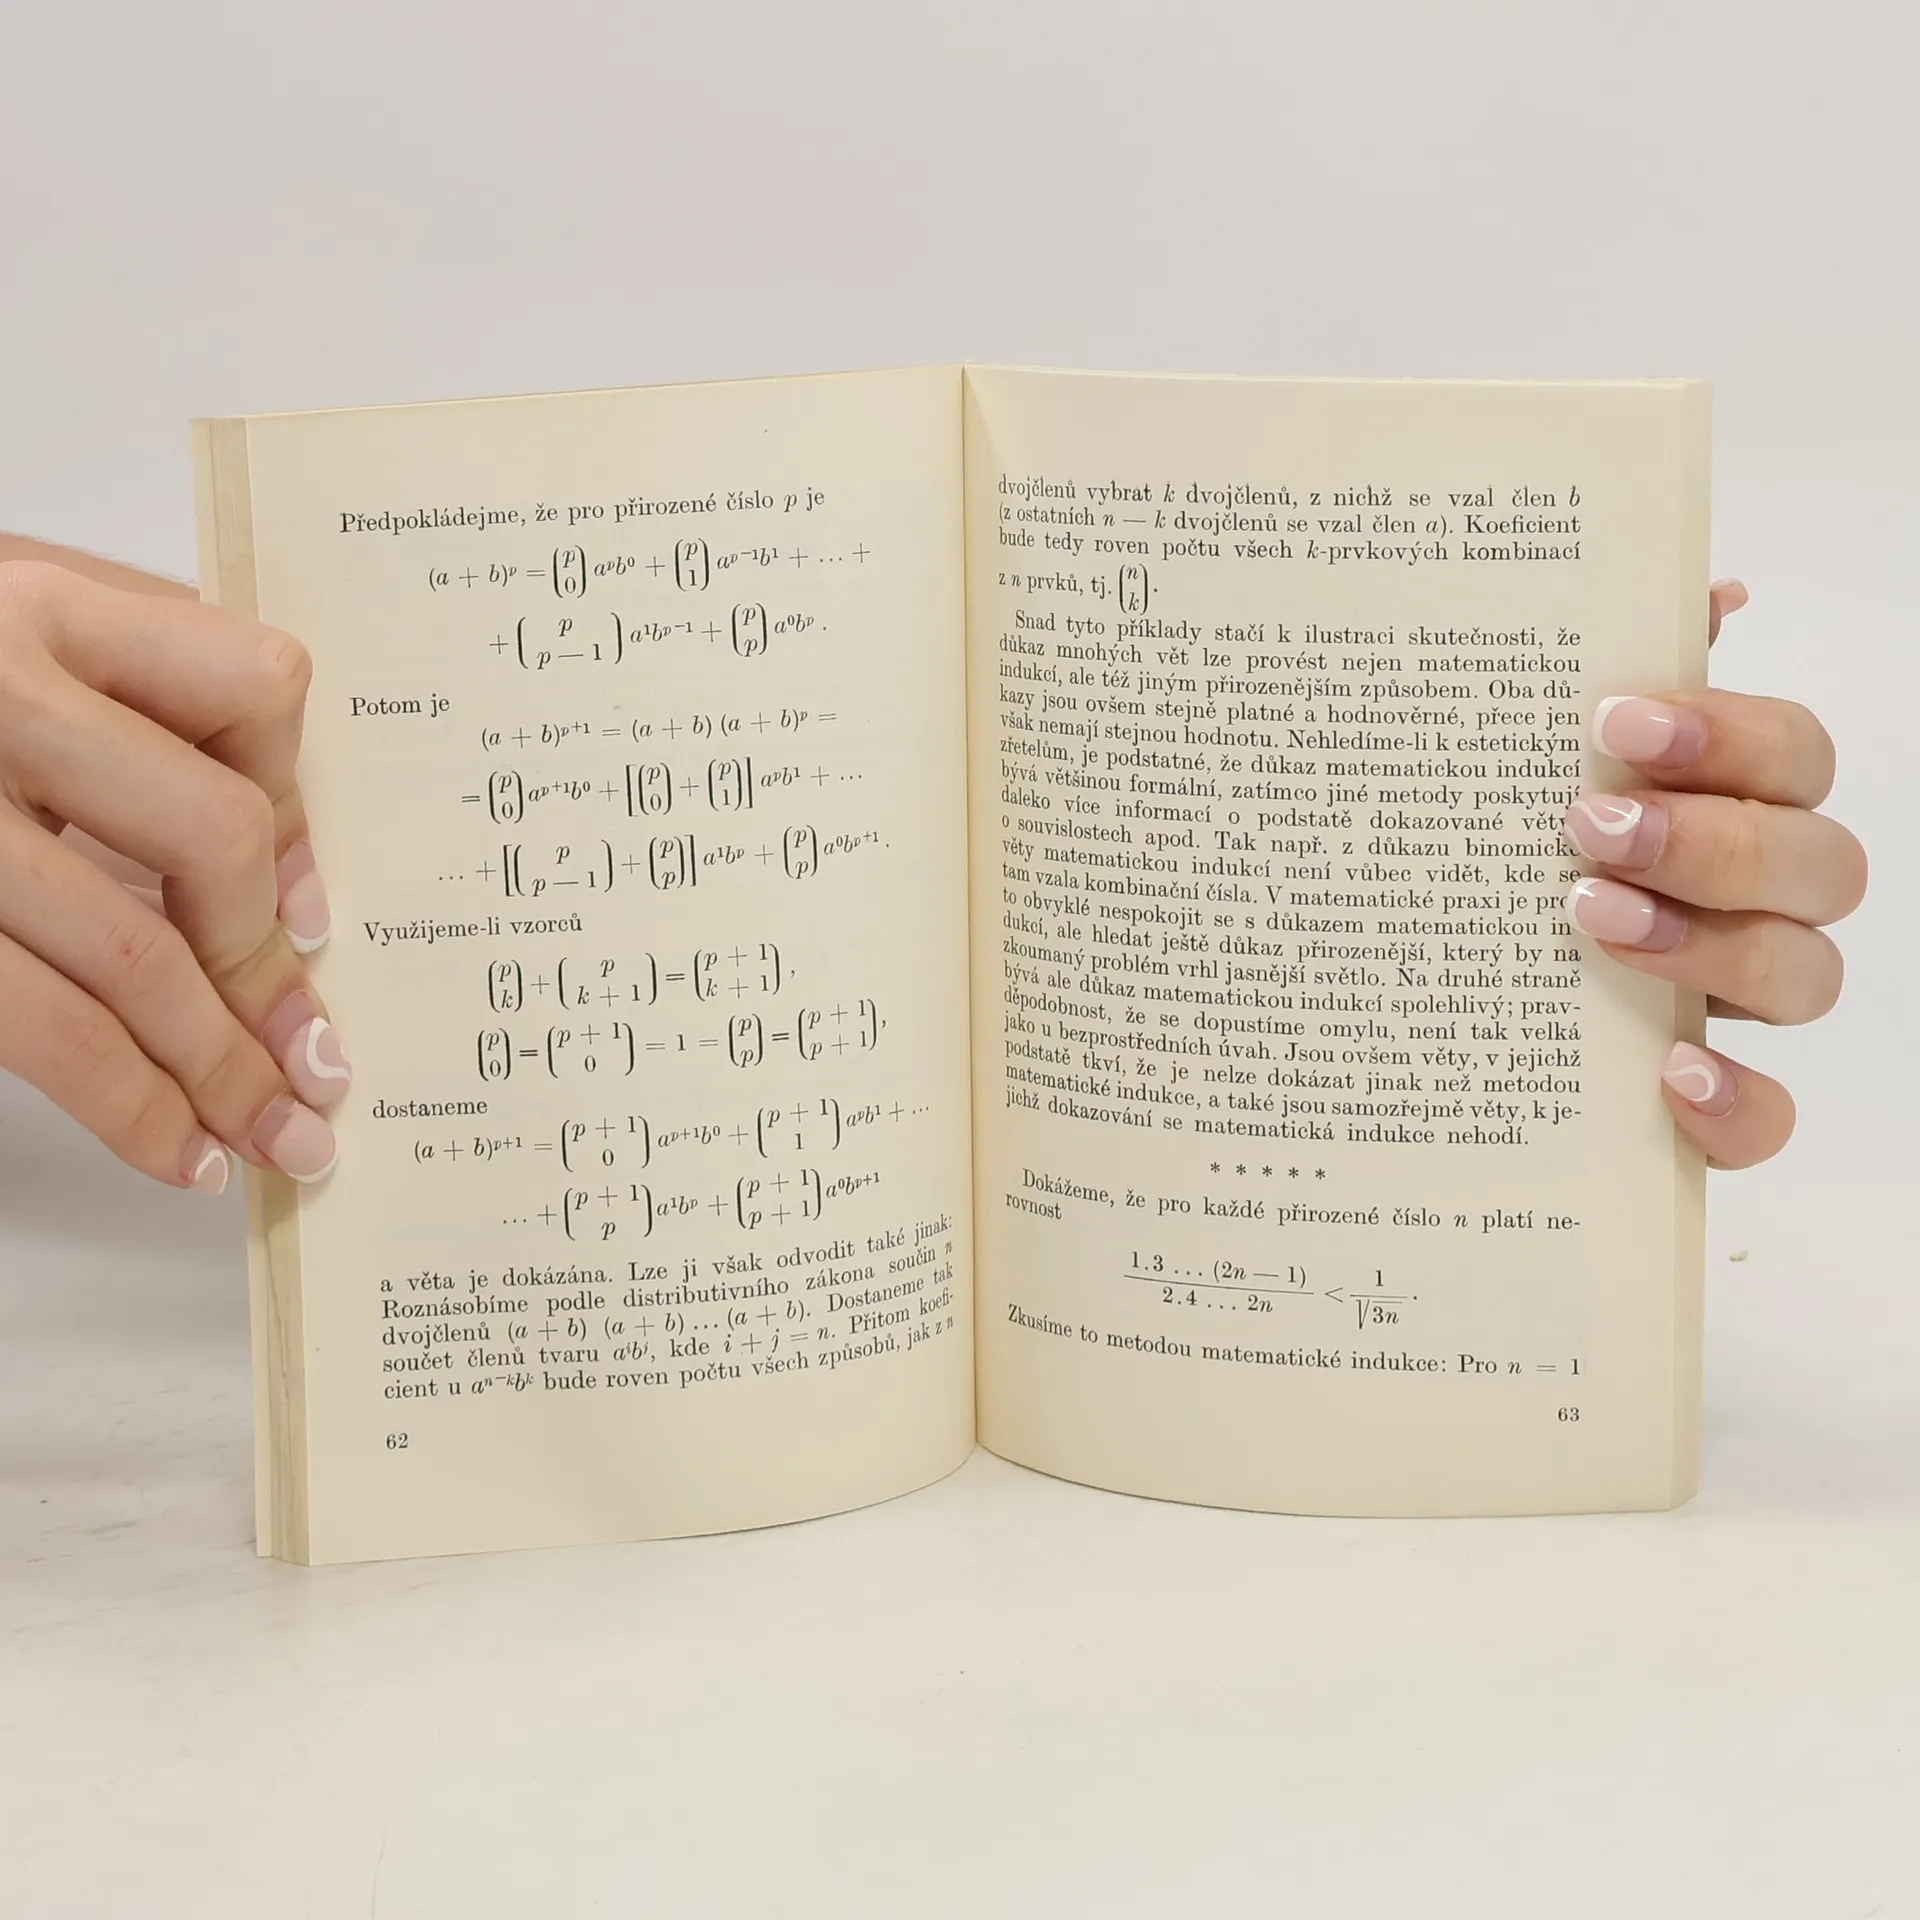 Předpokládejme, že pro přirozené číslo p je
(a + b)ᵖ = (p 0) aᵖb⁰ + (p 1) aᵖ⁻¹b¹ + ... +
+ (p p — 1) a¹bᵖ⁻¹ + (p p) a⁰bᵖ .
Potom je
(a + b)ᵖ⁺¹ = (a + b) (a + b)ᵖ =
= (p 0) aᵖ⁺¹b⁰ + [(p 0) + (p 1)] aᵖb¹ + ...
... + [(p p — 1) + (p p)] a¹bᵖ + (p p) a⁰bᵖ⁺¹ .
Využijeme-li vzorců
(p k) + (p k + 1) = (p + 1 k + 1) ,
(p 0) = (p + 1 0) = 1 = (p p) = (p + 1 p + 1),
dostaneme
(a + b)ᵖ⁺¹ = (p + 1 0) aᵖ⁺¹b⁰ + (p + 1 1) aᵖb¹ + ...
... + (p + 1 p) a¹bᵖ + (p + 1 p + 1) a⁰bᵖ⁺¹
a věta je dokázána. Lze ji však odvodit také jinak:
Roznásobíme podle distributivního zákona součin n
dvojčlenů (a + b) (a + b) ... (a + b). Dostaneme tak
součet členů tvaru aⁱbʲ, kde i + j = n. Přitom koefi-
cient u aⁿ⁻ᵏbᵏ bude roven počtu všech způsobů, jak z n
62
dvojčlenů vybrat k dvojčlenů, z nichž se vzal člen b
(z ostatních n — k dvojčlenů se vzal člen a). Koeficient
bude tedy roven počtu všech k-prvkových kombinací
z n prvků, tj. (n k).
Snad tyto příklady stačí k ilustraci skutečnosti, že
důkaz mnohých vět lze provést nejen matematickou
indukcí, ale též jiným přirozenějším způsobem. Oba dů-
kazy jsou ovšem stejně platné a hodnověrné, přece jen
však nemají stejnou hodnotu. Nehledíme-li k estetickým
zřetelům, je podstatné, že důkaz matematickou indukcí
bývá většinou formální, zatímco jiné metody poskytují
daleko více informací o podstatě dokazované věty
o souvislostech apod. Tak např. z důkazu binomické
věty matematickou indukcí není vůbec vidět, kde se
tam vzala kombinační čísla. V matematické praxi je pro
to obvyklé nespokojit se s důkazem matematickou in-
dukcí, ale hledat ještě důkaz přirozenější, který by na
zkoumaný problém vrhl jasnější světlo. Na druhé straně
bývá ale důkaz matematickou indukcí spolehlivý; prav-
děpodobnost, že se dopustíme omylu, není tak velká
jako u bezprostředních úvah. Jsou ovšem věty, v jejichž
podstatě tkví, že je nelze dokázat jinak než metodou
matematické indukce, a také jsou samozřejmě věty, k je-
jichž dokazování se matematická indukce nehodí.
* * * * *
Dokážeme, že pro každé přirozené číslo n platí ne-
rovnost
1.3 ... (2n — 1) / 2.4 ... 2n < 1 / √3n .
Zkusíme to metodou matematické indukce: Pro n = 1
63